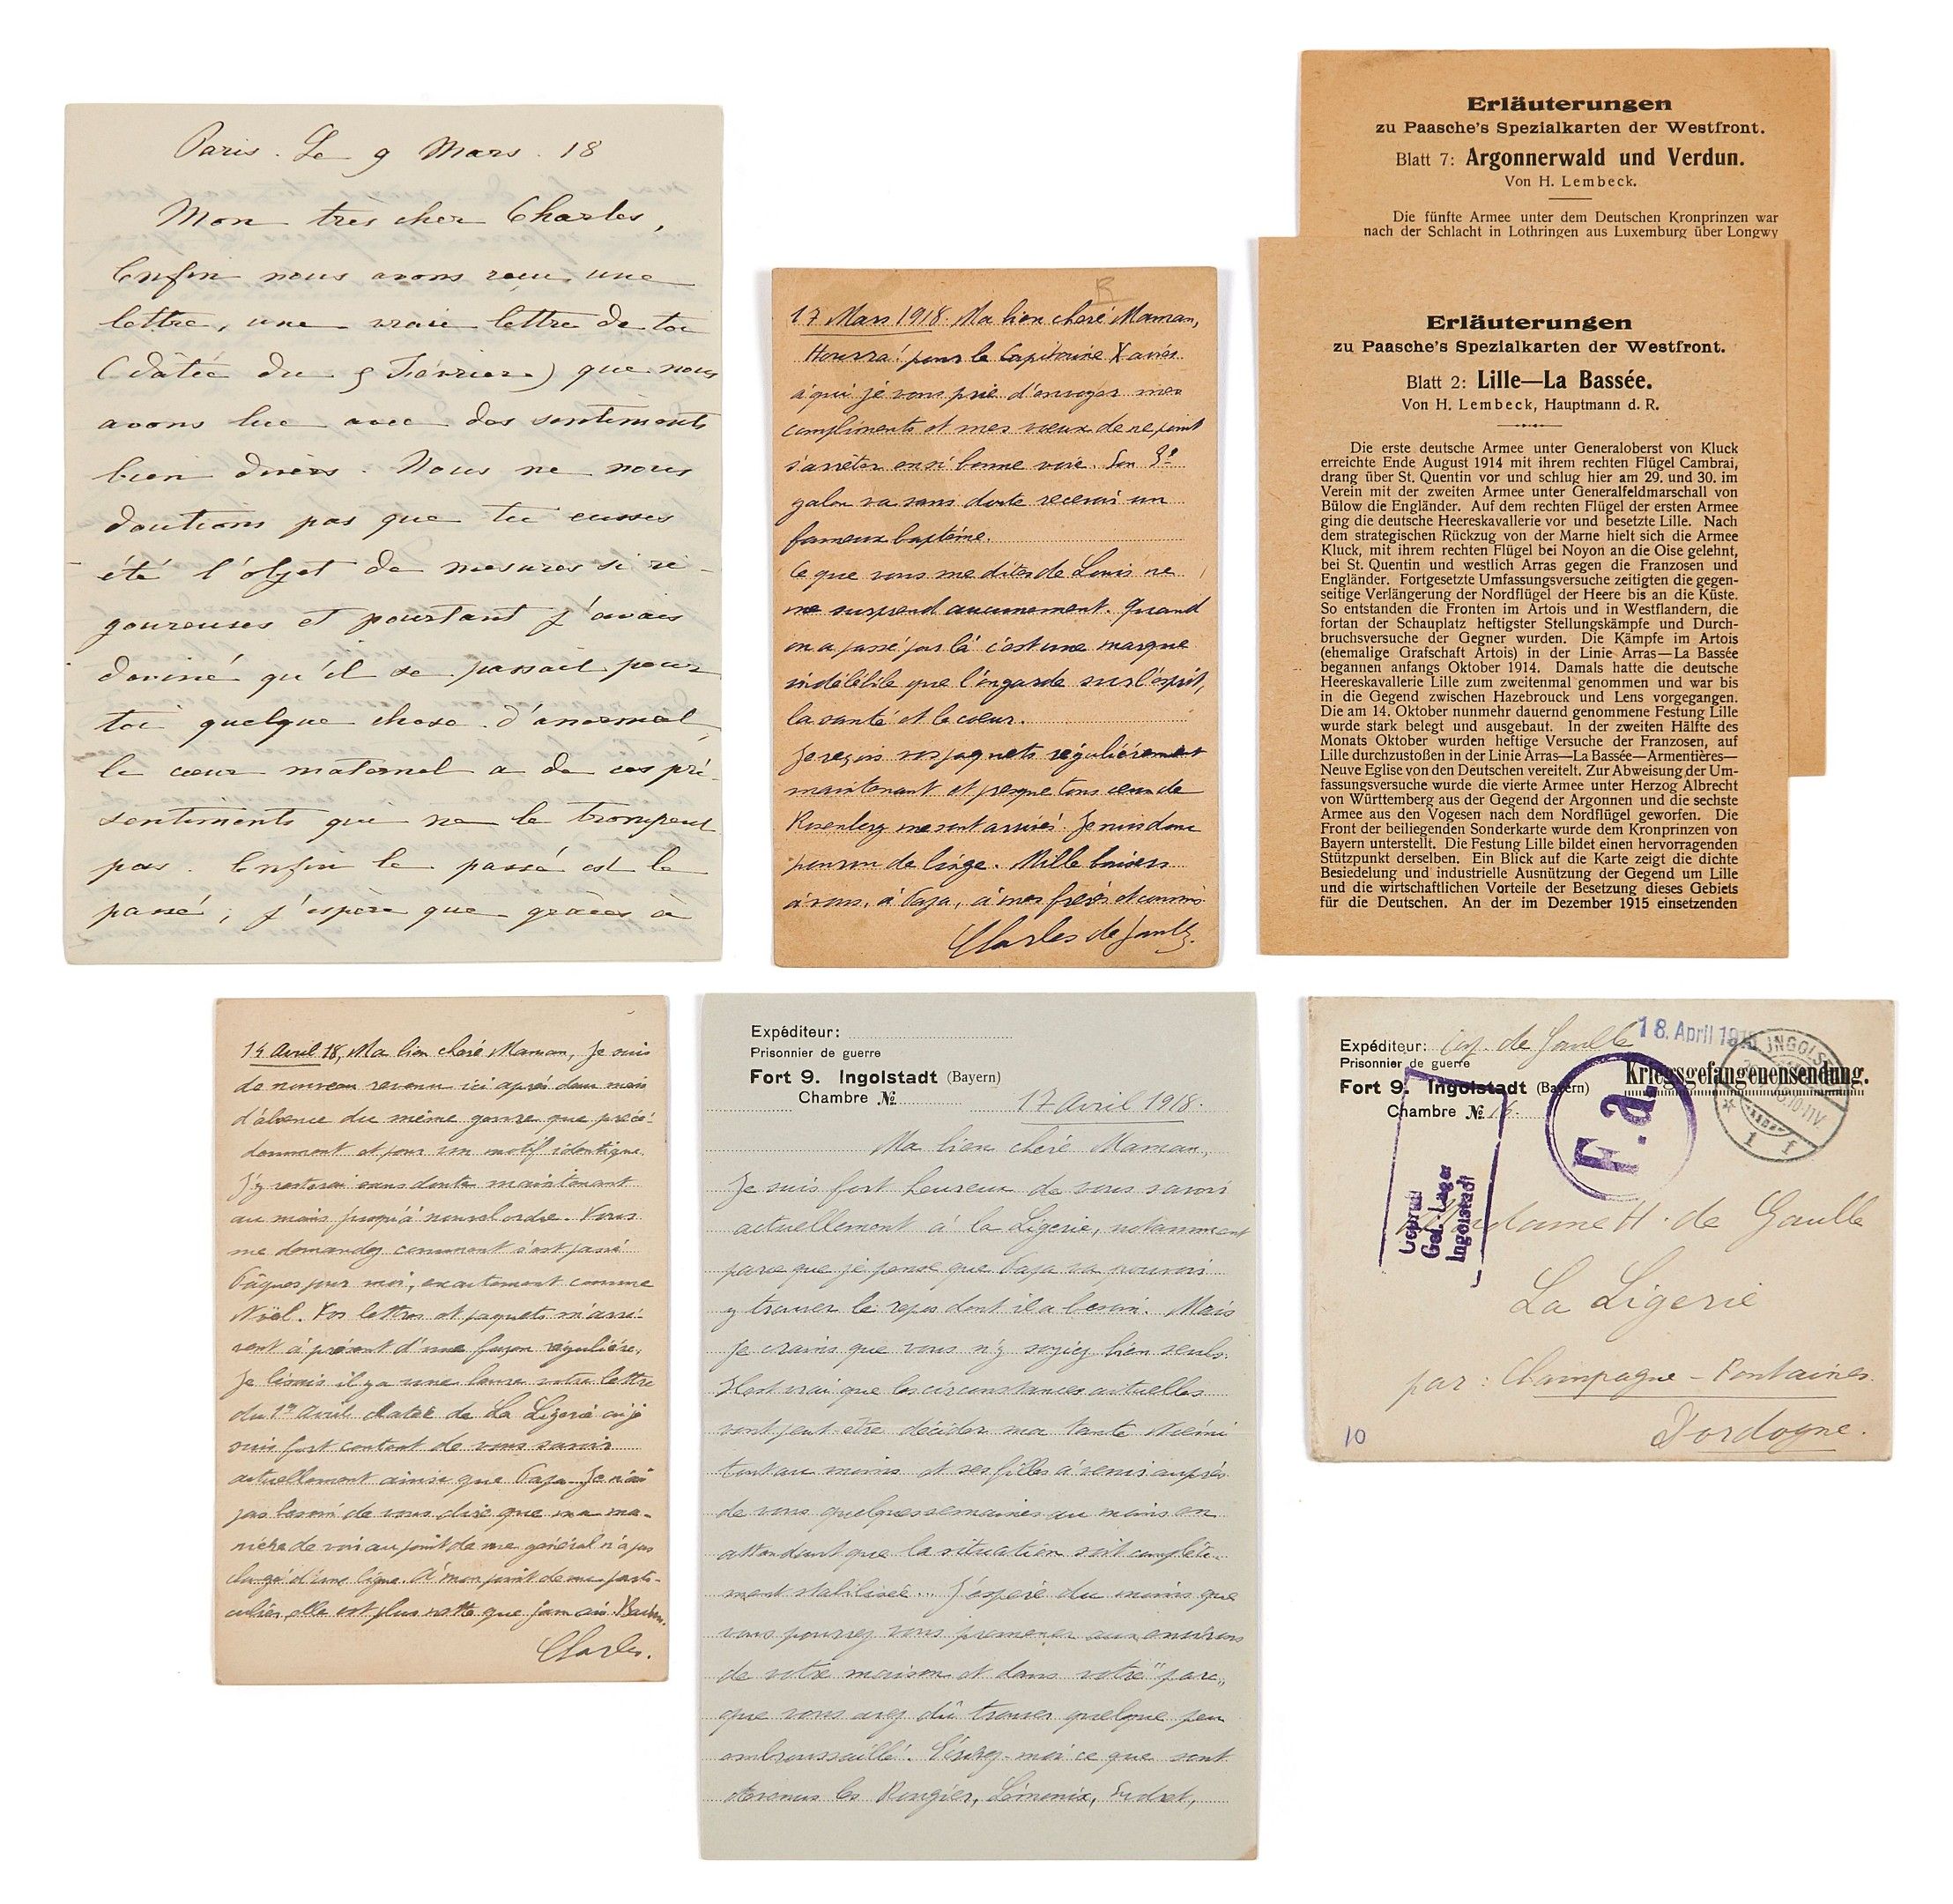 Paris. Le 9 Mars. 18
Mon tres cher Charles,
Enfin nous avons reçu une
lettre, une vraie lettre de toi
(datée du 5 Février) que nous
avons lue avec des sentiments
bien divers. Nous ne nous
doutions pas que tu eusses
été l'objet de mesures si ri-
goureuses et pourtant j'avais
deviné qu'il se passait pour
toi quelque chose d'anormal,
le cœur maternel a de ces pré-
sentiments qui ne le trompent
pas. Enfin le passé est le
passé; j'espère que grâces à
17 Mars 1918. Ma bien chère Maman,
Hourra! pour le Capitaine Xavier
à qui je vous prie d'envoyer mes
compliments et mes vœux de ne point
s'arrêter en si bonne voie. Son 3e
galon va sans doute recevoir un
fameux baptême.
Ce que vous me dites de Louis ne
me surprend aucunement. Quand
on a passé par là c'est une marque
indélébile que l'on garde sur l'esprit,
la santé et le cœur.
Je reçois vos paquets régulièrement
maintenant et presque tous ceux de
Rosenberg me sont arrivés. Je suis donc
pourvu de linge. Mille baisers
à vous, à Papa, à mes frères et
Charles de Gaulle.
Erläuterungen
zu Paasche's Spezialkarten der Westfront.
Blatt 7: Argonnerwald und Verdun.
Von H. Lembeck.
Die fünfte Armee unter dem Deutschen Kronprinzen war
nach der Schlacht in Lothringen aus Luxemburg über Longwy
Erläuterungen
zu Paasche's Spezialkarten der Westfront.
Blatt 2: Lille—La Bassée.
Von H. Lembeck, Hauptmann d. R.
Die erste deutsche Armee unter Generaloberst von Kluck
erreichte Ende August 1914 mit ihrem rechten Flügel Cambrai,
drang über St. Quentin vor und schlug hier am 29. und 30. im
Verein mit der zweiten Armee unter Generalfeldmarschall von
Bülow die Engländer. Auf dem rechten Flügel der ersten Armee
ging die deutsche Heereskavallerie vor und besetzte Lille. Nach
dem strategischen Rückzug von der Marne hielt sich die Armee
Kluck, mit ihrem rechten Flügel bei Noyon an die Oise gelehnt,
bei St. Quentin und westlich Arras gegen die Franzosen und
Engländer. Fortgesetzte Umfassungsversuche zeitigten die gegen-
seitige Verlängerung der Nordflügel der Heere bis an die Küste.
So entstanden die Fronten im Artois und in Westflandern, die
fortan der Schauplatz heftigster Stellungskämpfe und Durch-
bruchsversuche der Gegner wurden. Die Kämpfe im Artois
(ehemalige Grafschaft Artois) in der Linie Arras—La Bassée
begannen anfangs Oktober 1914. Damals hatte die deutsche
Heereskavallerie Lille zum zweitenmal genommen und war bis
in die Gegend zwischen Hazebrouck und Lens vorgegangen.
Die am 14. Oktober nunmehr dauernd genommene Festung Lille
wurde stark belegt und ausgebaut. In der zweiten Hälfte des
Monats Oktober wurden heftige Versuche der Franzosen, auf
Lille durchzustoßen in der Linie Arras—La Bassée—Armentières—
Neuve Eglise von den Deutschen vereitelt. Zur Abweisung der Um-
fassungsversuche wurde die vierte Armee unter Herzog Albrecht
von Württemberg aus der Gegend der Argonnen und die sechste
Armee aus den Vogesen nach dem Nordflügel geworfen. Die
Front der beiliegenden Sonderkarte wurde dem Kronprinzen von
Bayern unterstellt. Die Festung Lille bildet einen hervorragenden
Stützpunkt derselben. Ein Blick auf die Karte zeigt die dichte
Besiedelung und industrielle Ausnützung der Gegend um Lille
und die wirtschaftlichen Vorteile der Besetzung dieses Gebiets
für die Deutschen. An der im Dezember 1915 einsetzenden
14 Avril 18, Ma bien chère Maman, Je suis
de nouveau revenu ici après deux mois
d'absence du même genre que précé-
demment et pour un motif identique.
J'y resterai sans doute maintenant
au moins jusqu'à nouvel ordre. Vous
me demandez comment s'est passé
Pâques pour moi, exactement comme
Noël. Vos lettres et paquets m'arri-
vent à présent d'une façon régulière.
Je lisais il y a une heure votre lettre
du 1er Avril datée de La Ligerie où je
suis fort content de vous savoir
actuellement ainsi que Papa. Je n'ai
pas besoin de vous dire que ma ma-
nière de voir au point de vue général n'a pas
changé d'une ligne. A mon point de vue parti-
culier, elle est plus nette que jamais.
Charles.
Expéditeur:
Prisonnier de guerre
Fort 9. Ingolstadt (Bayern)
Chambre №
17 Avril 1918.
Ma bien chère Maman,
Je suis fort heureux de vous savoir
actuellement à la Ligerie, notamment
parce que je pense que Papa va pouvoir
y trouver le repos dont il a besoin. Mais
je crains que vous n'y soyiez bien seuls.
Il est vrai que les circonstances actuelles
vont peut-être décider ma tante Noémi
tout au moins et ses filles à venir auprès
de vous quelques semaines au moins en
attendant que la situation soit complète-
ment stabilisée... J'espère du moins que
vous pourrez vous promener aux environs
de votre maison et dans votre "parc"
que vous avez dû trouver quelque peu
embroussaillé. Ecrivez-moi ce que sont
devenus les Rougier, Lémonix,
Expéditeur: Cap. de Gaulle
Prisonnier de guerre
Fort 9. Ingolstadt (Bayern)
Chambre №
18. April 191
INGOLST
Kriegsgefangenensendung.
F.a.
Geprüft
Gef. Lager
Ingolstadt
Madame H. de Gaulle
La Ligerie
par: Champagne-Fontaines
Dordogne.
10